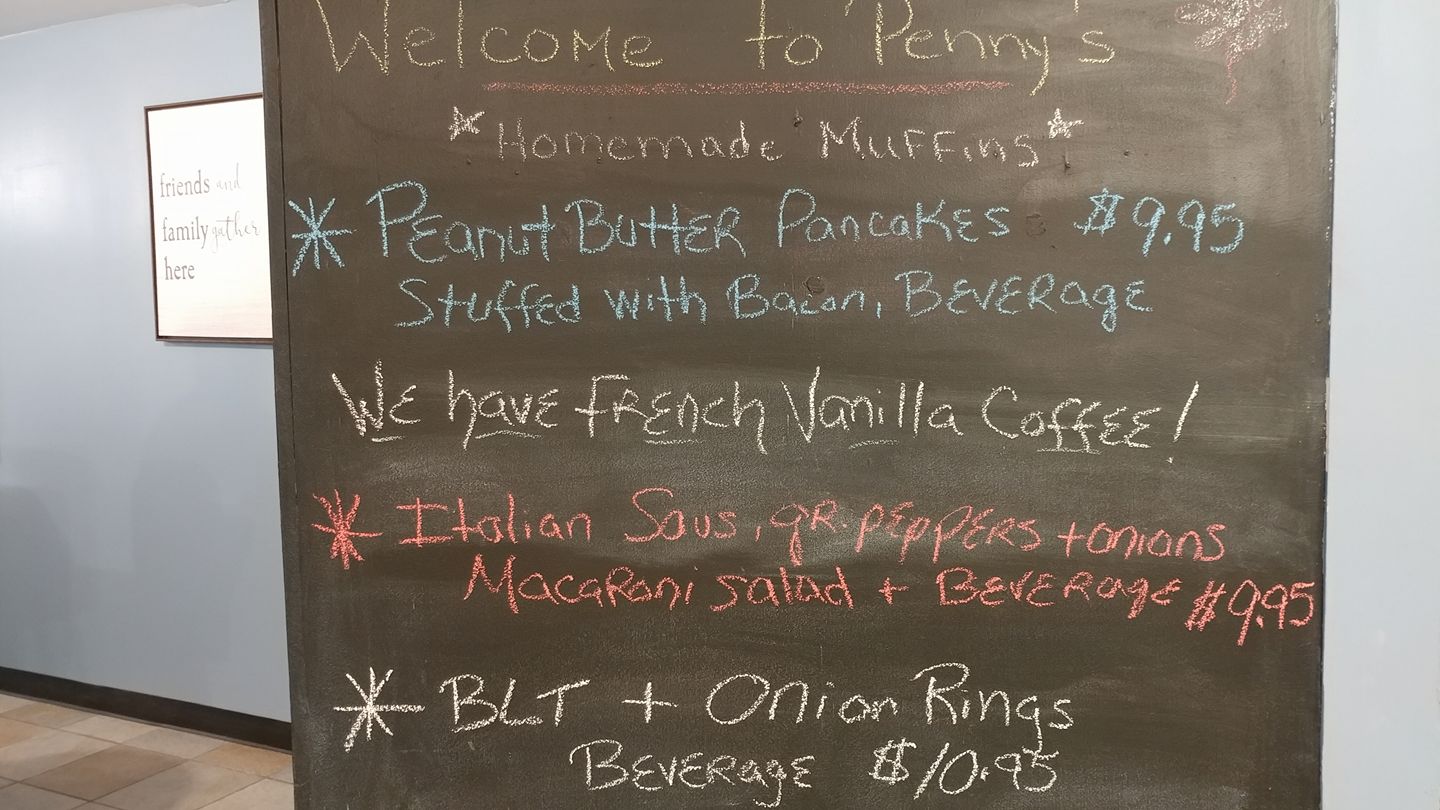 Welcome to Penny's
*Homemade Muffins*
* Peanut Butter Pancakes $9.95
Stuffed with Bacon, Beverage
We have French Vanilla Coffee!
* Italian Saus, gr. peppers + onions
Macaroni salad + Beverage $9.95
* BLT + Onion Rings
Beverage $10.95
friends and
family gather
here